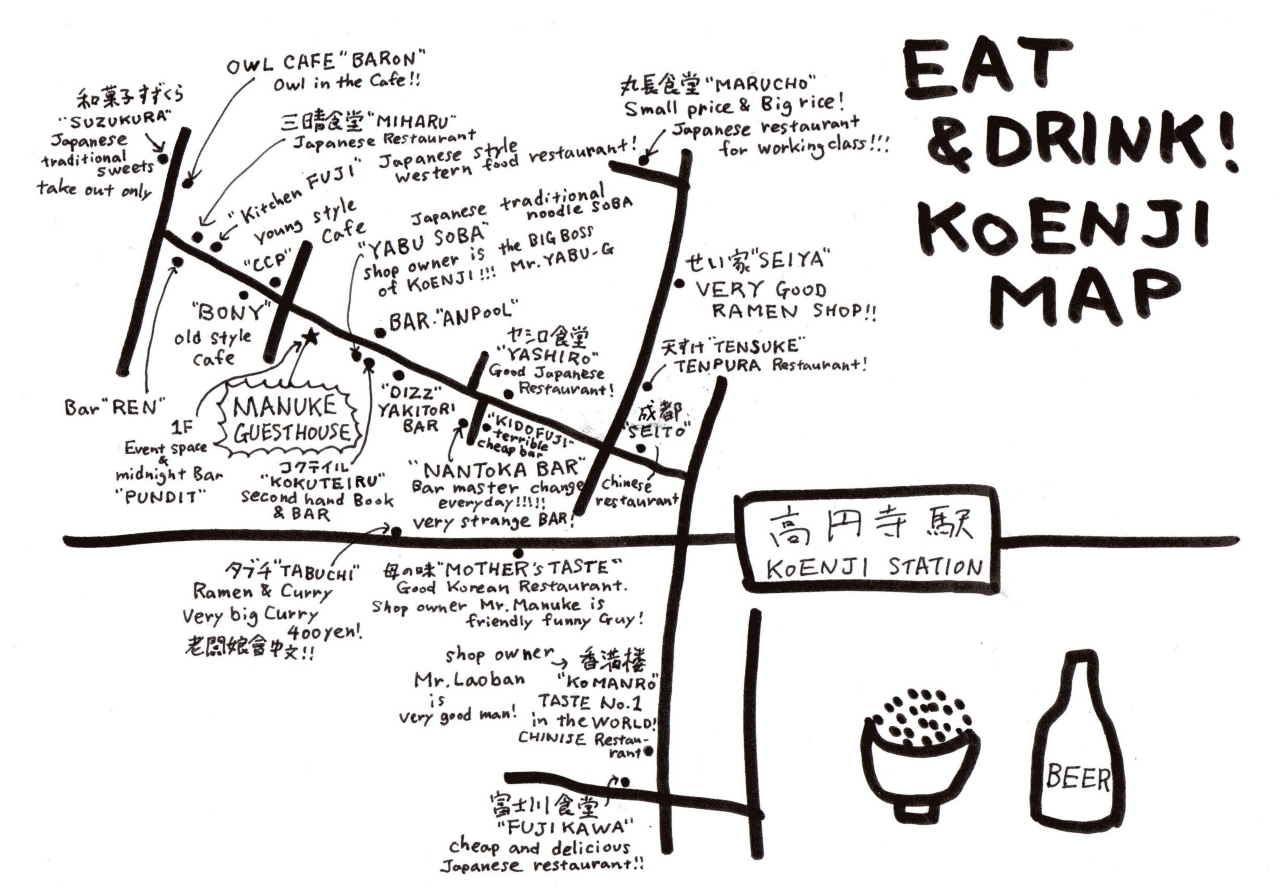 EAT
& DRINK!
KOENJI
MAP
OWL CAFE "BARON"
Owl in the Cafe!!
和菓子すずくら
"SUZUKURA"
Japanese
traditional
sweets
take out only
三晴食堂"MIHARU"
Japanese Restaurant
"Kitchen FUJI" Japanese style
western food restaurant!
young style
Cafe
"CCP"
"YABU SOBA" Japanese traditional
noodle SOBA
shop owner is the BIG BOSS
of KOENJI!!! Mr. YABU-G
丸長食堂"MARUCHO"
Small price & Big rice!
Japanese restaurant
for working class!!!
せい家"SEIYA"
VERY GOOD
RAMEN SHOP!!
天すけ"TENSUKE"
TENPURA Restaurant!
成都
"SEITO"
chinese
restaurant
"BONY"
old style
Cafe
BAR "ANPOOL"
ヤシロ食堂
"YASHIRO"
Good Japanese
Restaurant!
"DIZZ"
YAKITORI
BAR
"KIDOFUJI"
terrible
cheap bar
"NANTOKA BAR"
Bar master change
everyday!!!!!
very strange BAR!
Bar "REN"
MANUKE
GUESTHOUSE
1F
Event space
&
midnight Bar
"PUNDIT"
コクテイル
"KOKUTEIRU"
Second hand Book
& BAR
高円寺駅
KOENJI STATION
タブチ"TABUCHI"
Ramen & Curry
Very big Curry
400yen!
老闆娘會中文!!
母の味"MOTHER's TASTE"
Good Korean Restaurant.
Shop owner Mr. Manuke is
friendly funny Guy!
shop owner
Mr. Laoban
is
very good man!
香満楼
"KOMANRO"
TASTE No.1
in the WORLD!
CHINISE Restau-
rant
富士川食堂
"FUJIKAWA"
cheap and delicious
Japanese restaurant!!
BEER